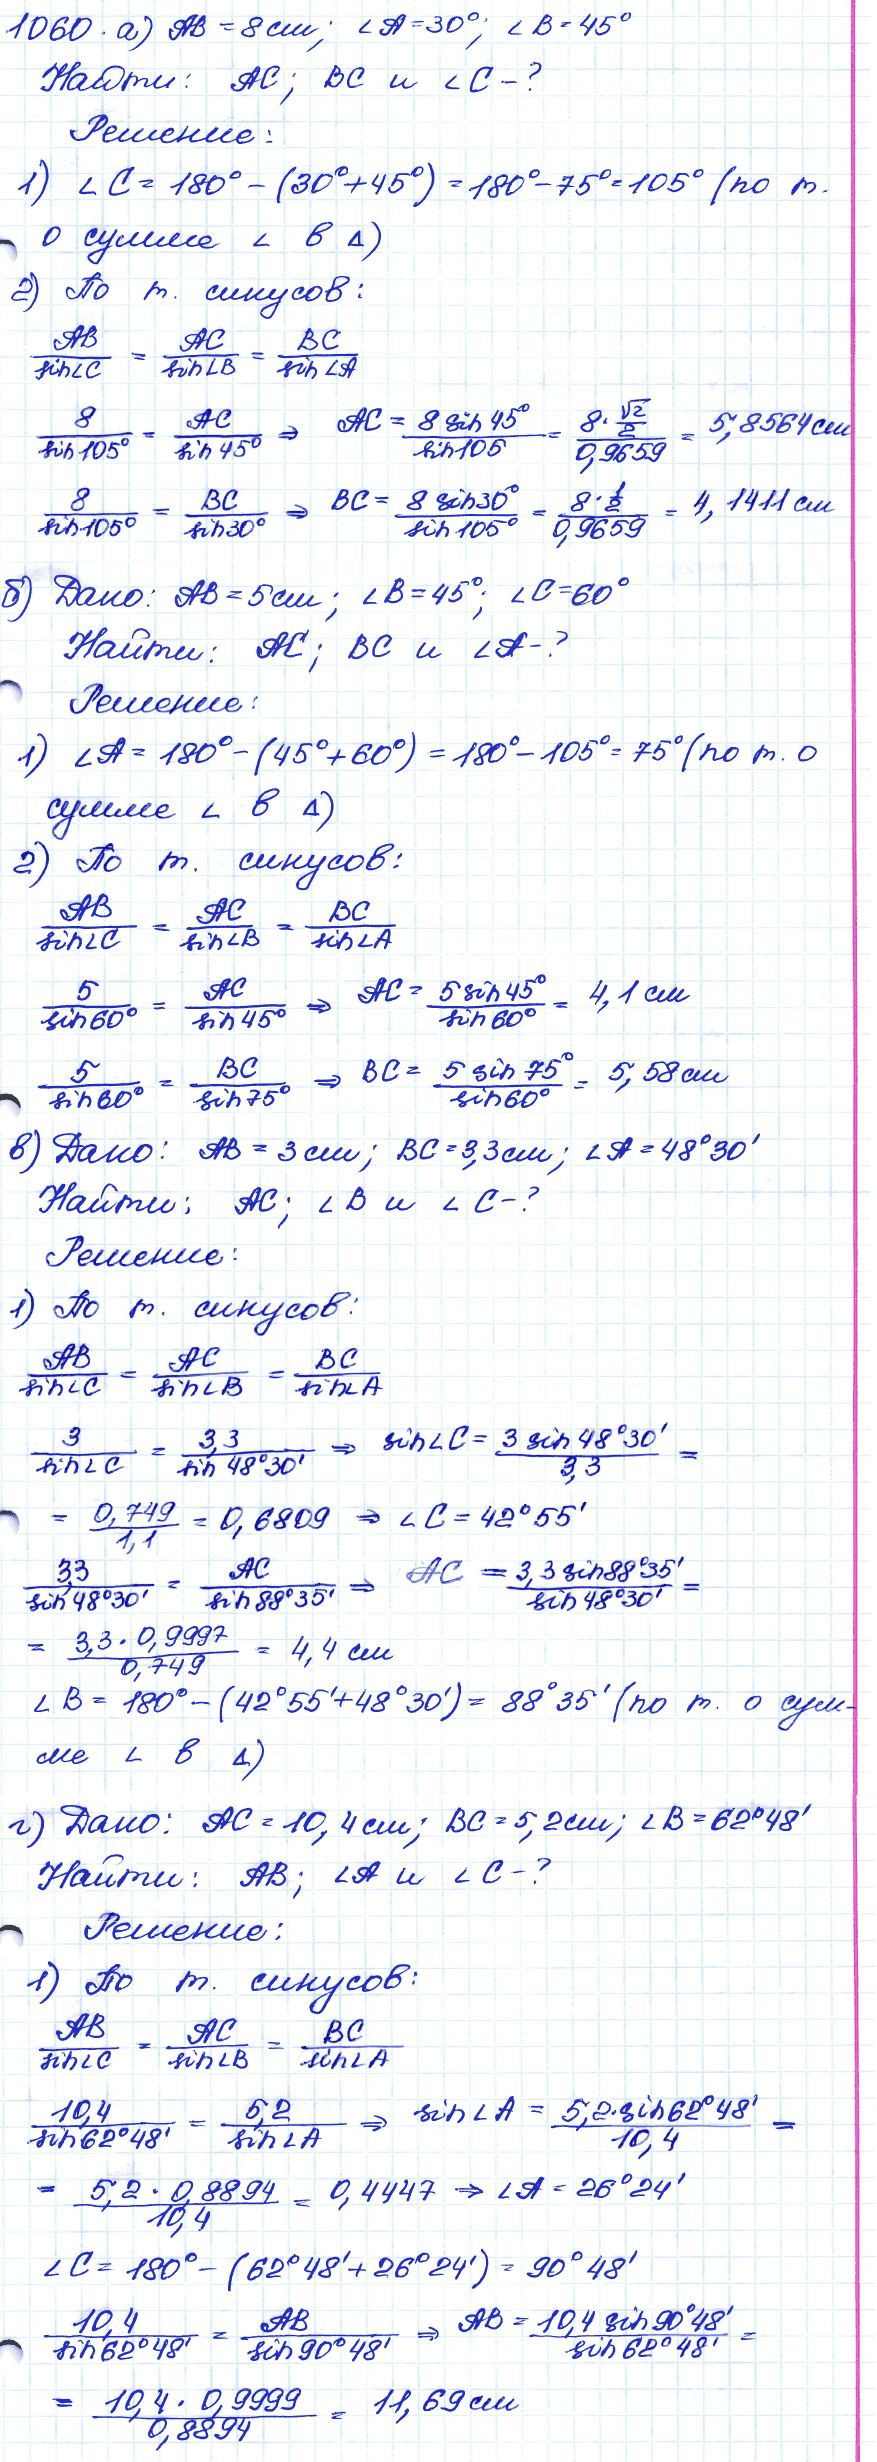 1060. а) AB = 8 см; ∠A = 30°; ∠B = 45°
Найти: AC; BC и ∠C - ?
Решение:
1) ∠C = 180° - (30° + 45°) = 180° - 75° = 105° (по т.
о сумме ∠ в Δ)
2) По т. синусов:
AB/sin∠C = AC/sin∠B = BC/sin∠A
8/sin105° = AC/sin45° ⇒ AC = 8 sin45°/sin105 = 8·√2/2/0,9659 = 5,8564 см
8/sin105° = BC/sin30° ⇒ BC = 8 sin30°/sin105° = 8·1/2/0,9659 = 4,1411 см
б) Дано: AB = 5 см; ∠B = 45°; ∠C = 60°
Найти: AC; BC и ∠A - ?
Решение:
1) ∠A = 180° - (45° + 60°) = 180° - 105° = 75° (по т. о
сумме ∠ в Δ)
2) По т. синусов:
AB/sin∠C = AC/sin∠B = BC/sin∠A
5/sin60° = AC/sin45° ⇒ AC = 5 sin45°/sin60° = 4,1 см
5/sin60° = BC/sin75° ⇒ BC = 5 sin75°/sin60° = 5,58 см
в) Дано: AB = 3 см; BC = 3,3 см; ∠A = 48°30'
Найти: AC; ∠B и ∠C - ?
Решение:
1) По т. синусов:
AB/sin∠C = AC/sin∠B = BC/sin∠A
3/sin∠C = 3,3/sin48°30' ⇒ sin∠C = 3 sin48°30'/3,3 =
= 0,749/1,1 = 0,6809 ⇒ ∠C = 42°55'
3,3/sin48°30' = AC/sin88°35' ⇒ AC = 3,3 sin88°35'/sin48°30' =
= 3,3·0,9997/0,749 = 4,4 см
∠B = 180° - (42°55' + 48°30') = 88°35' (по т. о сум-
ме ∠ в Δ)
г) Дано: AC = 10,4 см; BC = 5,2 см; ∠B = 62°48'
Найти: AB; ∠A и ∠C - ?
Решение:
1) По т. синусов:
AB/sin∠C = AC/sin∠B = BC/sin∠A
10,4/sin62°48' = 5,2/sin∠A ⇒ sin∠A = 5,2·sin62°48'/10,4 =
= 5,2·0,8894/10,4 = 0,4447 ⇒ ∠A = 26°24'
∠C = 180° - (62°48' + 26°24') = 90°48'
10,4/sin62°48' = AB/sin90°48' ⇒ AB = 10,4 sin90°48'/sin62°48' =
= 10,4·0,9999/0,8894 = 11,69 см